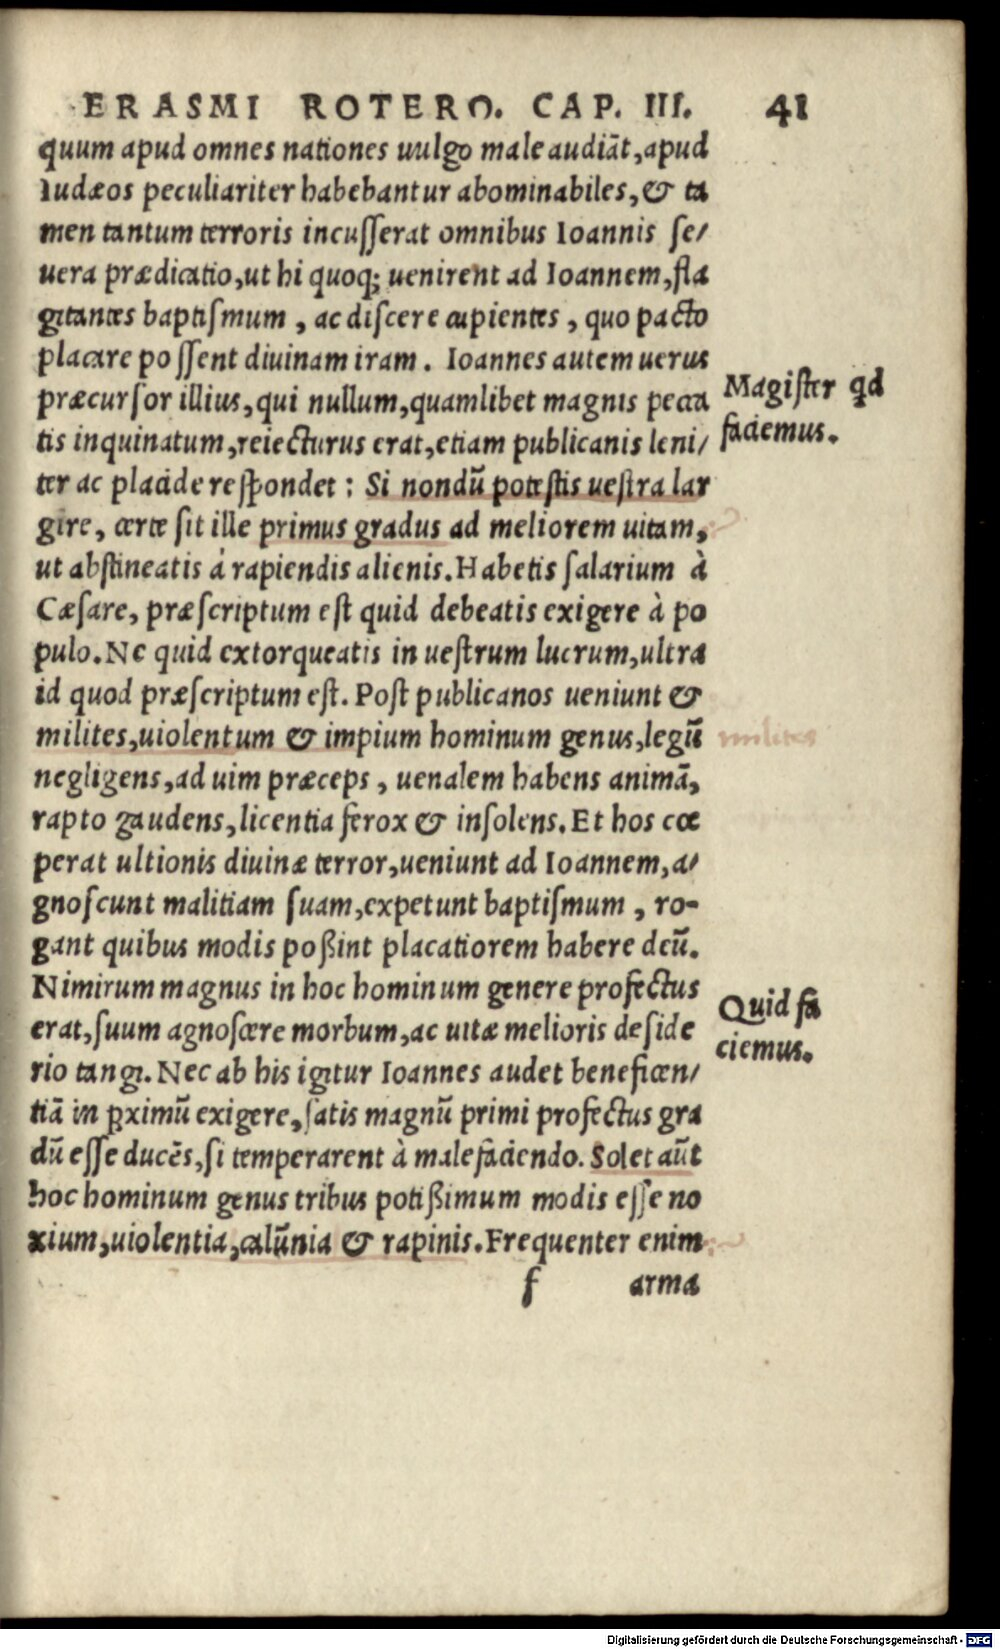 ERASMI ROTERO. CAP. III. 41
quum apud omnes nationes uulgo male audiāt, apud
Iudæos peculiariter habebantur abominabiles, & ta
men tantum terroris incusserat omnibus Ioannis se/
uera prædicatio, ut hi quoq; uenirent ad Ioannem, fla
gitantes baptismum, ac discere cupientes, quo pacto
placare possent diuinam iram. Ioannes autem uerus
præcursor illius, qui nullum, quamlibet magnis pecca
Magister qd
tis inquinatum, reiecturus erat, etiam publicanis leni/
faciemus.
ter ac placide respondet: Si nondū potestis uestra lar
gire, certe sit ille primus gradus ad meliorem uitam,
ut abstineatis á rapiendis alienis. Habetis salarium à
Cæsare, præscriptum est quid debeatis exigere à po
pulo. Ne quid extorqueatis in uestrum lucrum, ultra
id quod præscriptum est. Post publicanos ueniunt &
milites, uiolentum & impium hominum genus, legū
milites
negligens, ad uim præceps, uenalem habens animā,
rapto gaudens, licentia ferox & insolens. Et hos cœ
perat ultionis diuinæ terror, ueniunt ad Ioannem, a/
gnoscunt malitiam suam, expetunt baptismum, ro-
gant quibus modis poßint placatiorem habere deū.
Nimirum magnus in hoc hominum genere profectus
Quid fa
erat, suum agnoscere morbum, ac uitæ melioris deside
ciemus.
rio tangi. Nec ab his igitur Ioannes audet beneficen/
tiā in ꝓximū exigere, satis magnū primi profectus gra
dū esse ducēs, si temperarent à malefaciendo. Solet aūt
hoc hominum genus tribus potißimum modis esse no
xium, uiolentia, calūnia & rapinis. Frequenter enim
f arma
Digitalisierung gefördert durch die Deutsche Forschungsgemeinschaft - DFG